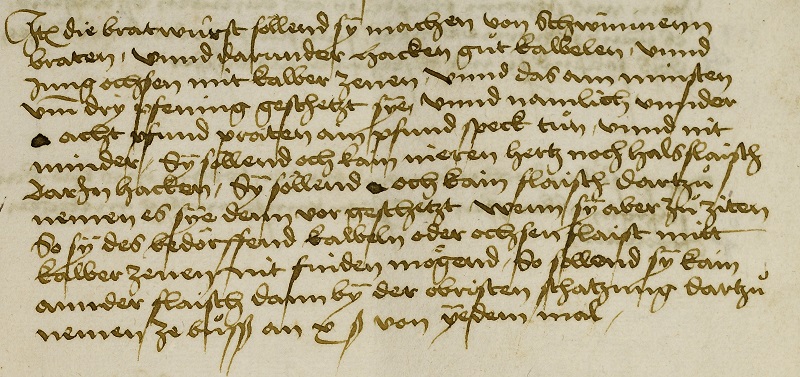 Itẍ die bratwürst söllend sÿ machen von Schwinninenn
braten, vnnd darunder hacken gůt kalbelen, vnnd
Jung ochsen mit kalber zenen, vnnd das am minsten
vm̄ dry pfening geschetzt sÿe, vnnd namlich vnnder
acht pfund praten ain pfund speck tůn, vnnd nit
minder, Sÿ söllend och kain nieren hertz noch halsflaisch
darIn hacken, Sÿ söllend och kain flaisch dartzů
nemen es sÿe denn vor geschetzt. Wenn sÿ aber zů ziten
So sÿ des bedörffend kalbeln oder ochsen flaist mitt
kalber zenen nit finden mögend, So söllend sÿ kain
annder flaisch dann bÿ der obristen schatzung dartzů
nemen ze bůss an x ß von yedem mal,